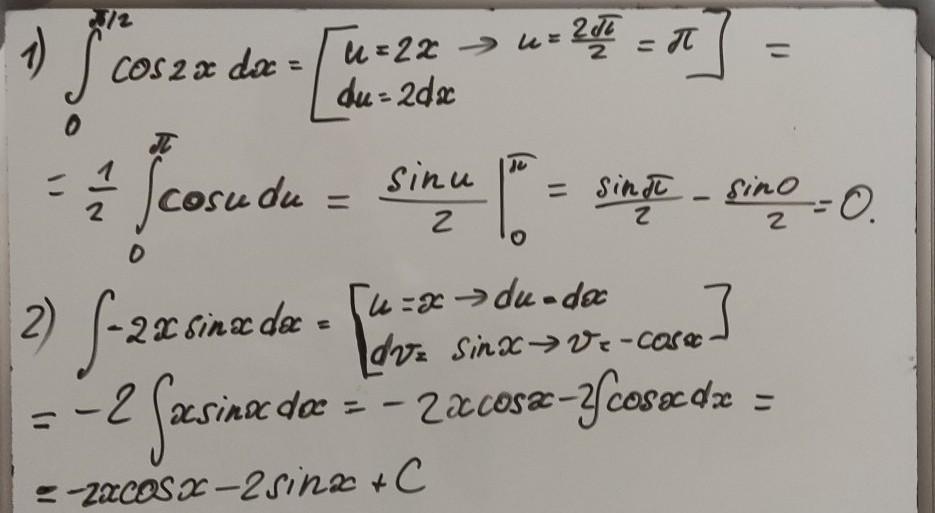 1) ∫₀^{π/2} cos2x dx = [u = 2x → u = 2π/2 = π] =
du = 2dx
= 1/2 ∫₀^π cosu du = sinu/2 |₀^π = sinπ/2 - sin0/2 = 0.
2) ∫-2x sinx dx = [u = x → du = dx]
dv = sinx → v = -cosx
= -2 ∫x sinx dx = -2xcosx - 2∫cosx dx =
= -2xcosx - 2sinx + C